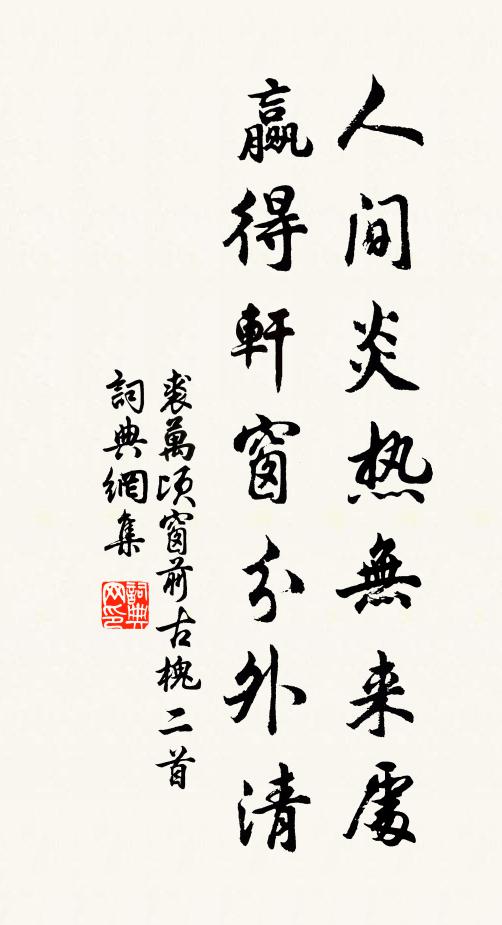 人間炎热無来處
贏得軒窗分外清
裘萬頃窗前古槐二首
詞典網集
詞典网印